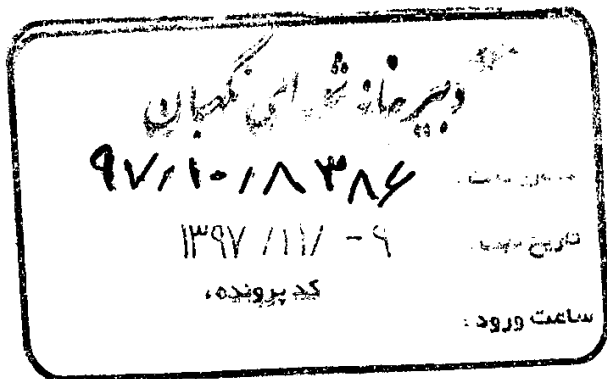 دبیرخانه شورای نگهبان
۹۷/۱۰/۸۳۸۶
تاریخ ۱۳۹۷ /۱۱/ -۹
کد پرونده،
ساعت ورود :